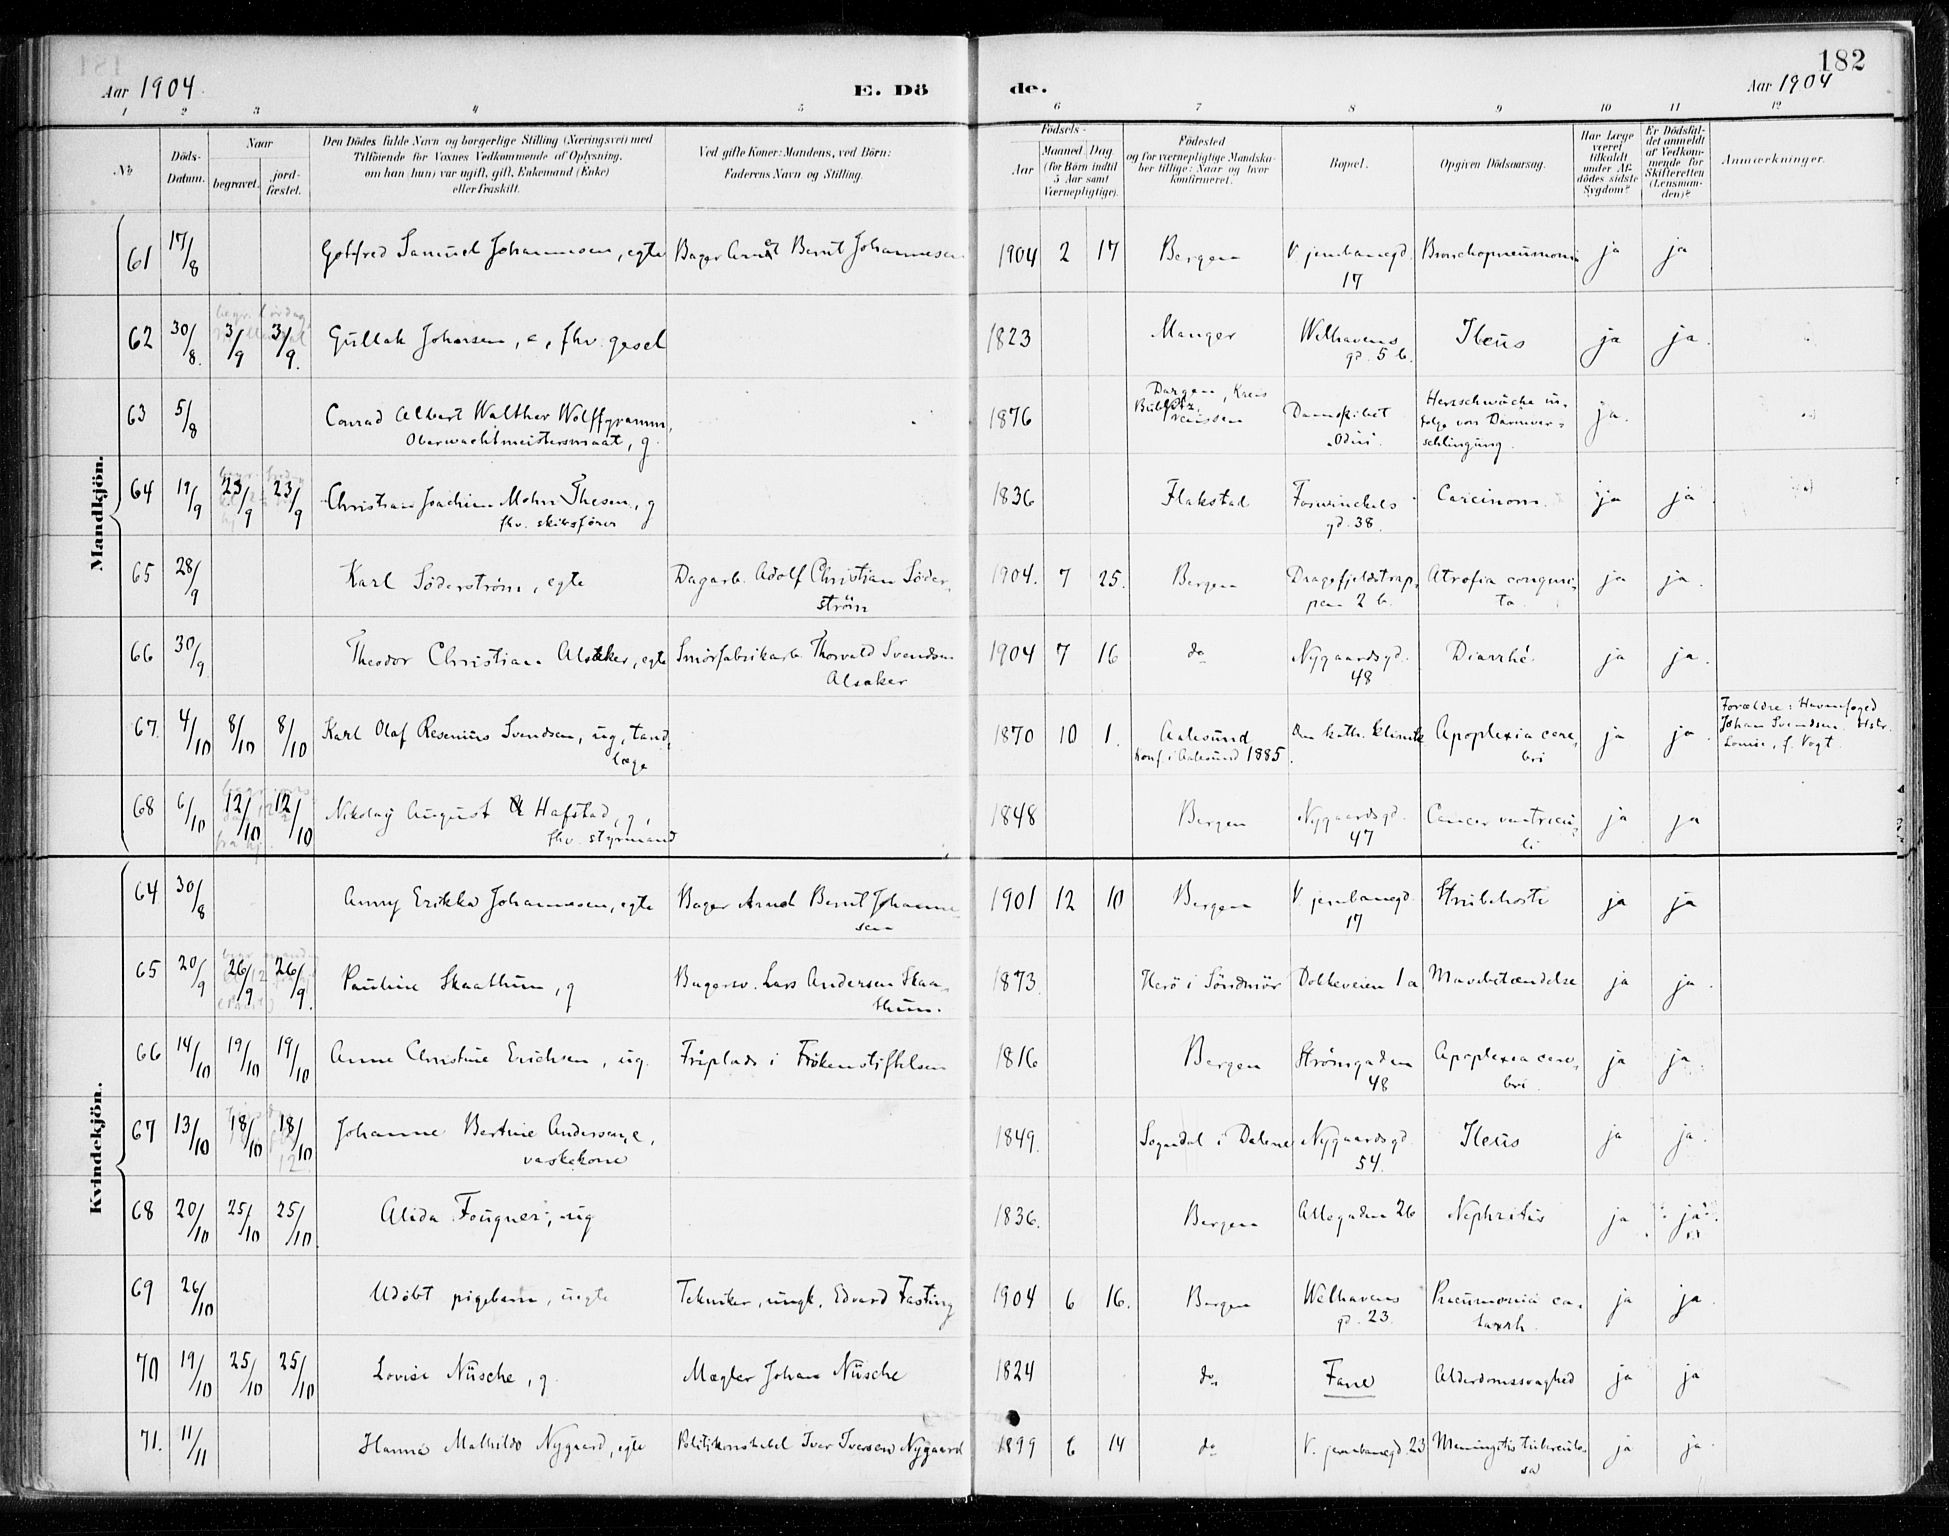 182
Aar 1904.
E. Dö
de.
Aar 1904
1 2 3 4 5 6 7 8 9 10 11 12
No
Döds-Datum.
Naar
begravet.
jord-fæstet.
Den Dödes fulde Navn og borgerlige Stilling (Næringsvei) med
Tilföiende for Voxnes Vedkommende af Oplysning,
om han (hun) var ugift, gift, Enkemand (Enke)
eller fraskilt.
Ved gifte Koner: Mandens, ved Börn:
Faderens Navn og Stilling.
Födsels-
Aar
Maaned Dag
(for Börn indtil
5 Aar samt
Værnepligtige).
Födested
og for værnepligtige Mandska-
ber tillige: Naar og hvor
konfirmeret.
Bopæl.
Opgiven Dödsaarsag.
Har Læge
været
tilkaldt
under Af-
dödes sidste
Sygdom?
Er Dödsfal-
det anmeldt
af Vedkom-
mende for
Skifteretten
(Lensman-
den)?
Anmærkninger.
Mandkjön.
61 17/8 Gotfred Samuel Johannesen, egte Bager Bernt Johannesen 1904 2 17 Bergen V jernbanegd. 17 Bronchopneumoni ja ja
62 30/8. 3/9 3/9. Gullak Johansen, e, fhv. gesel 1823 Manger Welhavens gd. 5 b. Ileus ja ja.
63 5/8 Conrad Albert Walther Wolffgramm, Oberwachtmeistersmaat, g 1876 Dargen, Kreis Bublitz, Preussen Damskibet Odin. Herzschwäche in- folge von Darmver- schlingung. ja.
64 19/9 23/9 23/9 Christian Joachim Mohr Thesen, g fhv. skibsfører 1836 Flakstad Foswinckels gd. 38. Carcinom. ja ja
65 28/9 Karl Söderström, egte Dagarb. Adolf Christian Söder- ström 1904. 7 25. Bergen Dragefjeldstrap- pen 2 b. Atrofia congeni- ta ja ja.
66 30/9. Theodor Christian Alsaker, egte Smörfabrikarb. Thorvald Svendsen Alsaker 1904 7 16 do Nygaardsgd. 48 Diarrhé ja ja.
67. 4/10 8/10 8/10 Karl Olaf Resenius Svendsen, ug, tand- læge 1870 10 1. Aalesund Konf. i Aalesund 1885. Den kath. klinik Apoplexia cere- bri ja ja Forældre: Havnefoged Johan Svendsen Hstr. Louise, f. Vogt.
68 6/10 12/10 12/10 Nikolay August Hafstad, g, fhv. styrmand 1848 Bergen Nygaardsgd. 47 Cancer ventricu- li ja ja
Kvindekjön.
64 30/8 Anny Erikka Johannesen, egte Bager Arndt Bernt Johanne- sen 1901 12 10 Bergen V jernbanegd. 17 Strubehoste ja ja
65 20/9 26/9 26/9. Pauline Skaathun, g Bagersv. Lars Andersen Skaa- thun. 1873. Herö i Söndmör Dokkeveien 1 a Mavebetændelse ja ja.
66 14/10 19/10 19/10 Anne Christine Erichsen, ug. Friplads i Frökenstiftelsen 1816 Bergen Strömgaden 48 Apoplexia cere- bri. ja ja
67 13/10 18/10 18/10 Johanne Bertine Andersen, e, vaskekone 1849. Sogndal i Dalene Nygaardsgd. 54. Ileus ja ja.
68 20/10 25/10 25/10. Alida Fougner, ug 1836. Bergen Allegaden 26 Nephritis ja ja
69 26/10 Udöbt pigebarn, uegte Tekniker, ungk. Edvard Fasting 1904 6 16. Bergen Welhavens gd. 23. Pneumonia ca- tarrh. ja ja.
70 19/10 25/10 25/10 Lovise Nüsche, g. Mægler Johan Nüsche 1824 do. Fane Alderdomssvaghed ja ja
71. 11/11 Hanna Mathilde Nygaard, egte Politikonstabel Iver Iversen Nygaard 1899 6 14 do V. jernbanegd. 23 Meningitis tuberculo- sa ja ja.